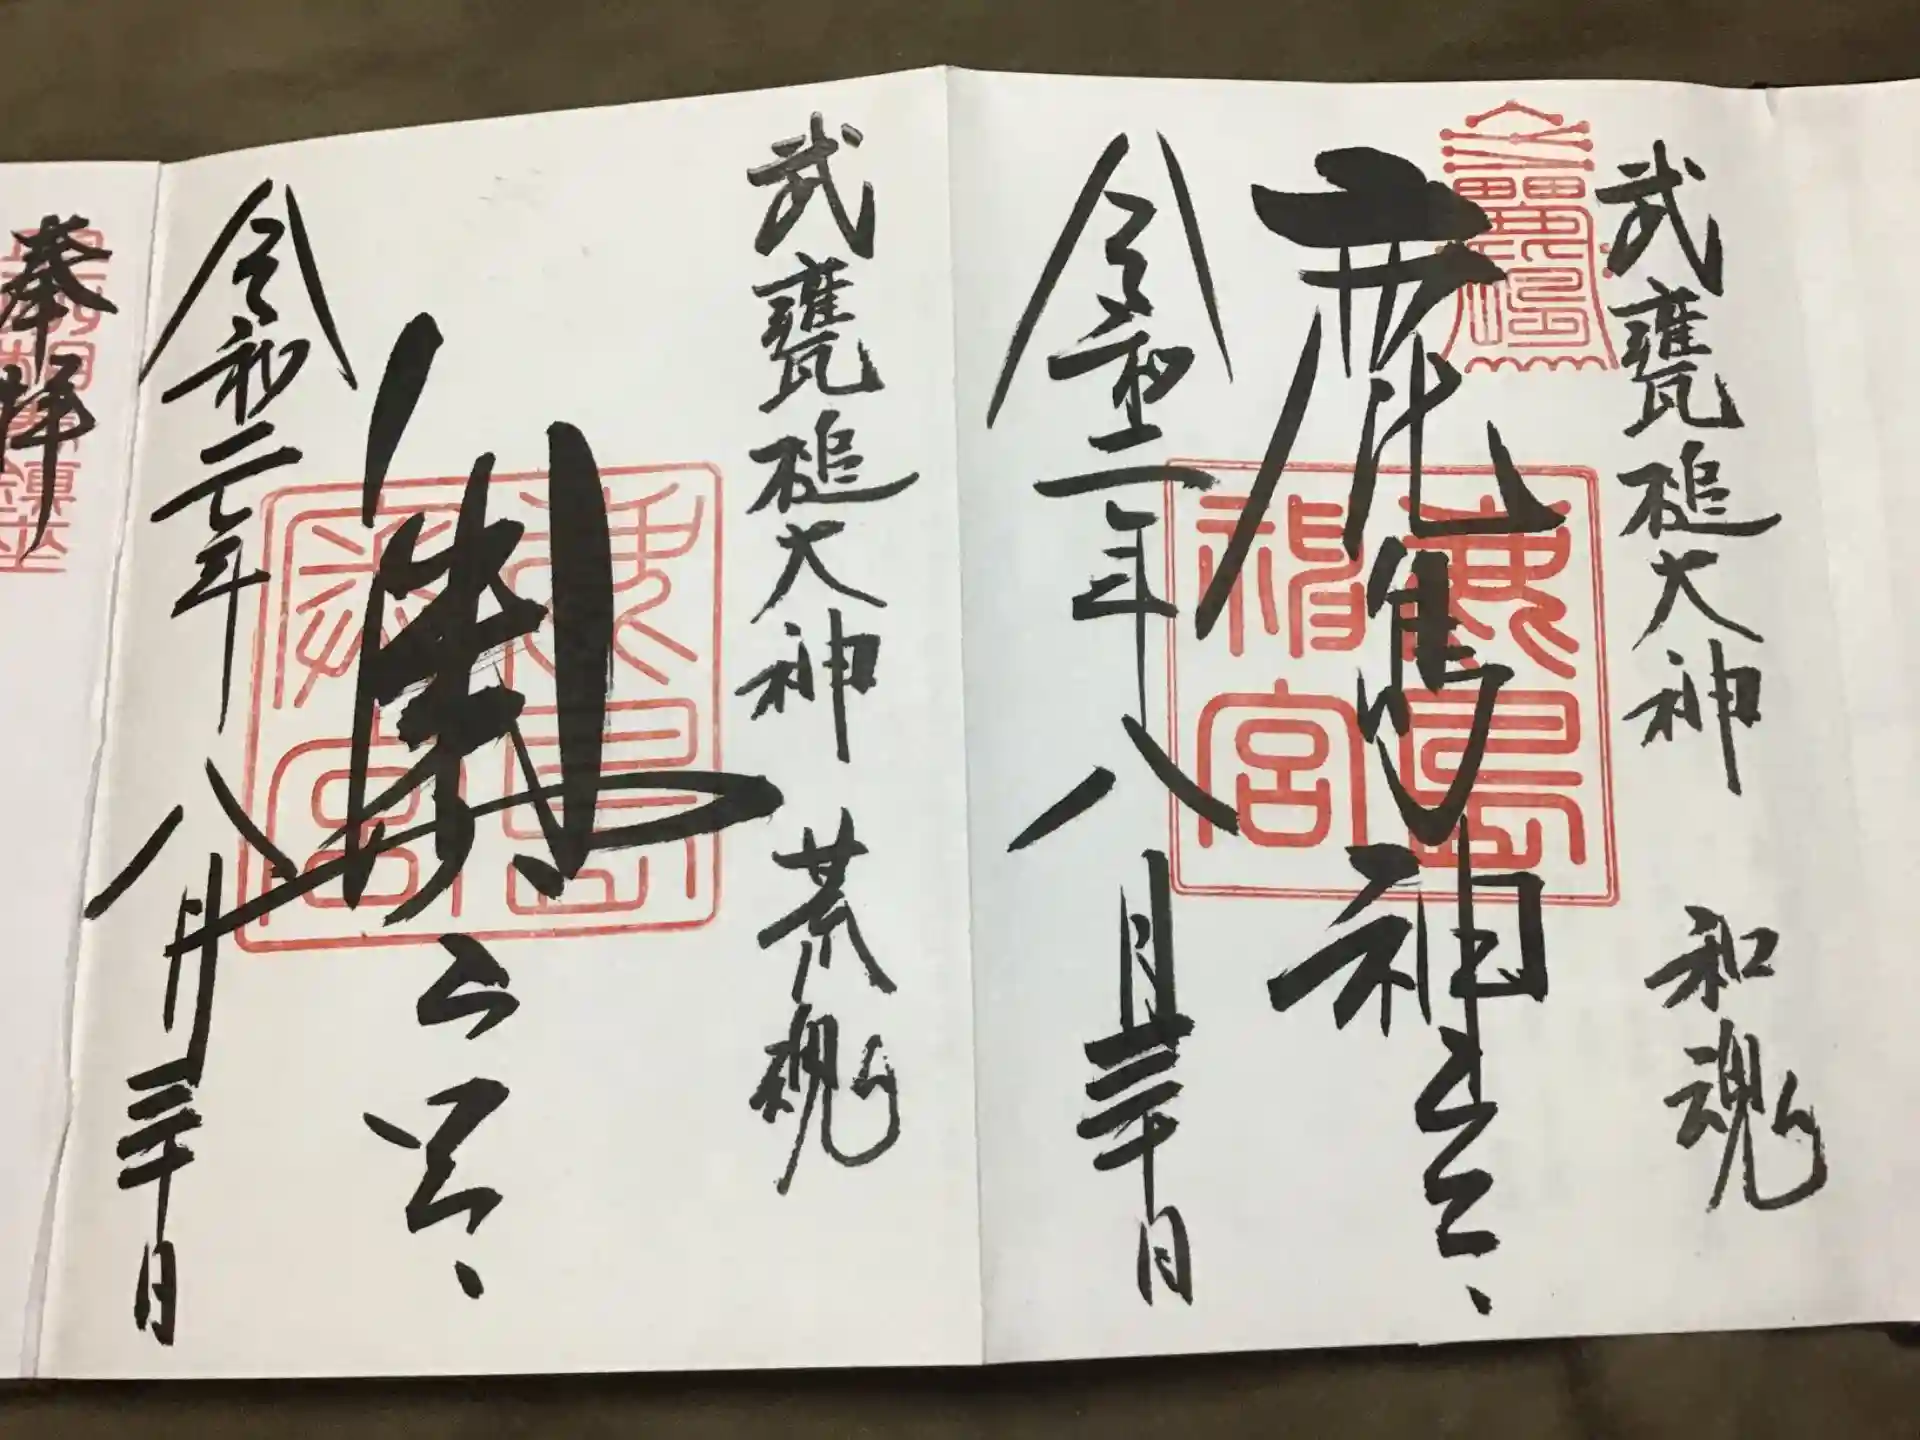 武甕槌大神 和魂
鹿島神宮
鹿島
神宮
令和二年八月三十日
武甕槌大神 荒魂
奥宮
鹿島
奥宮
令和二年八月三十日
奉拝